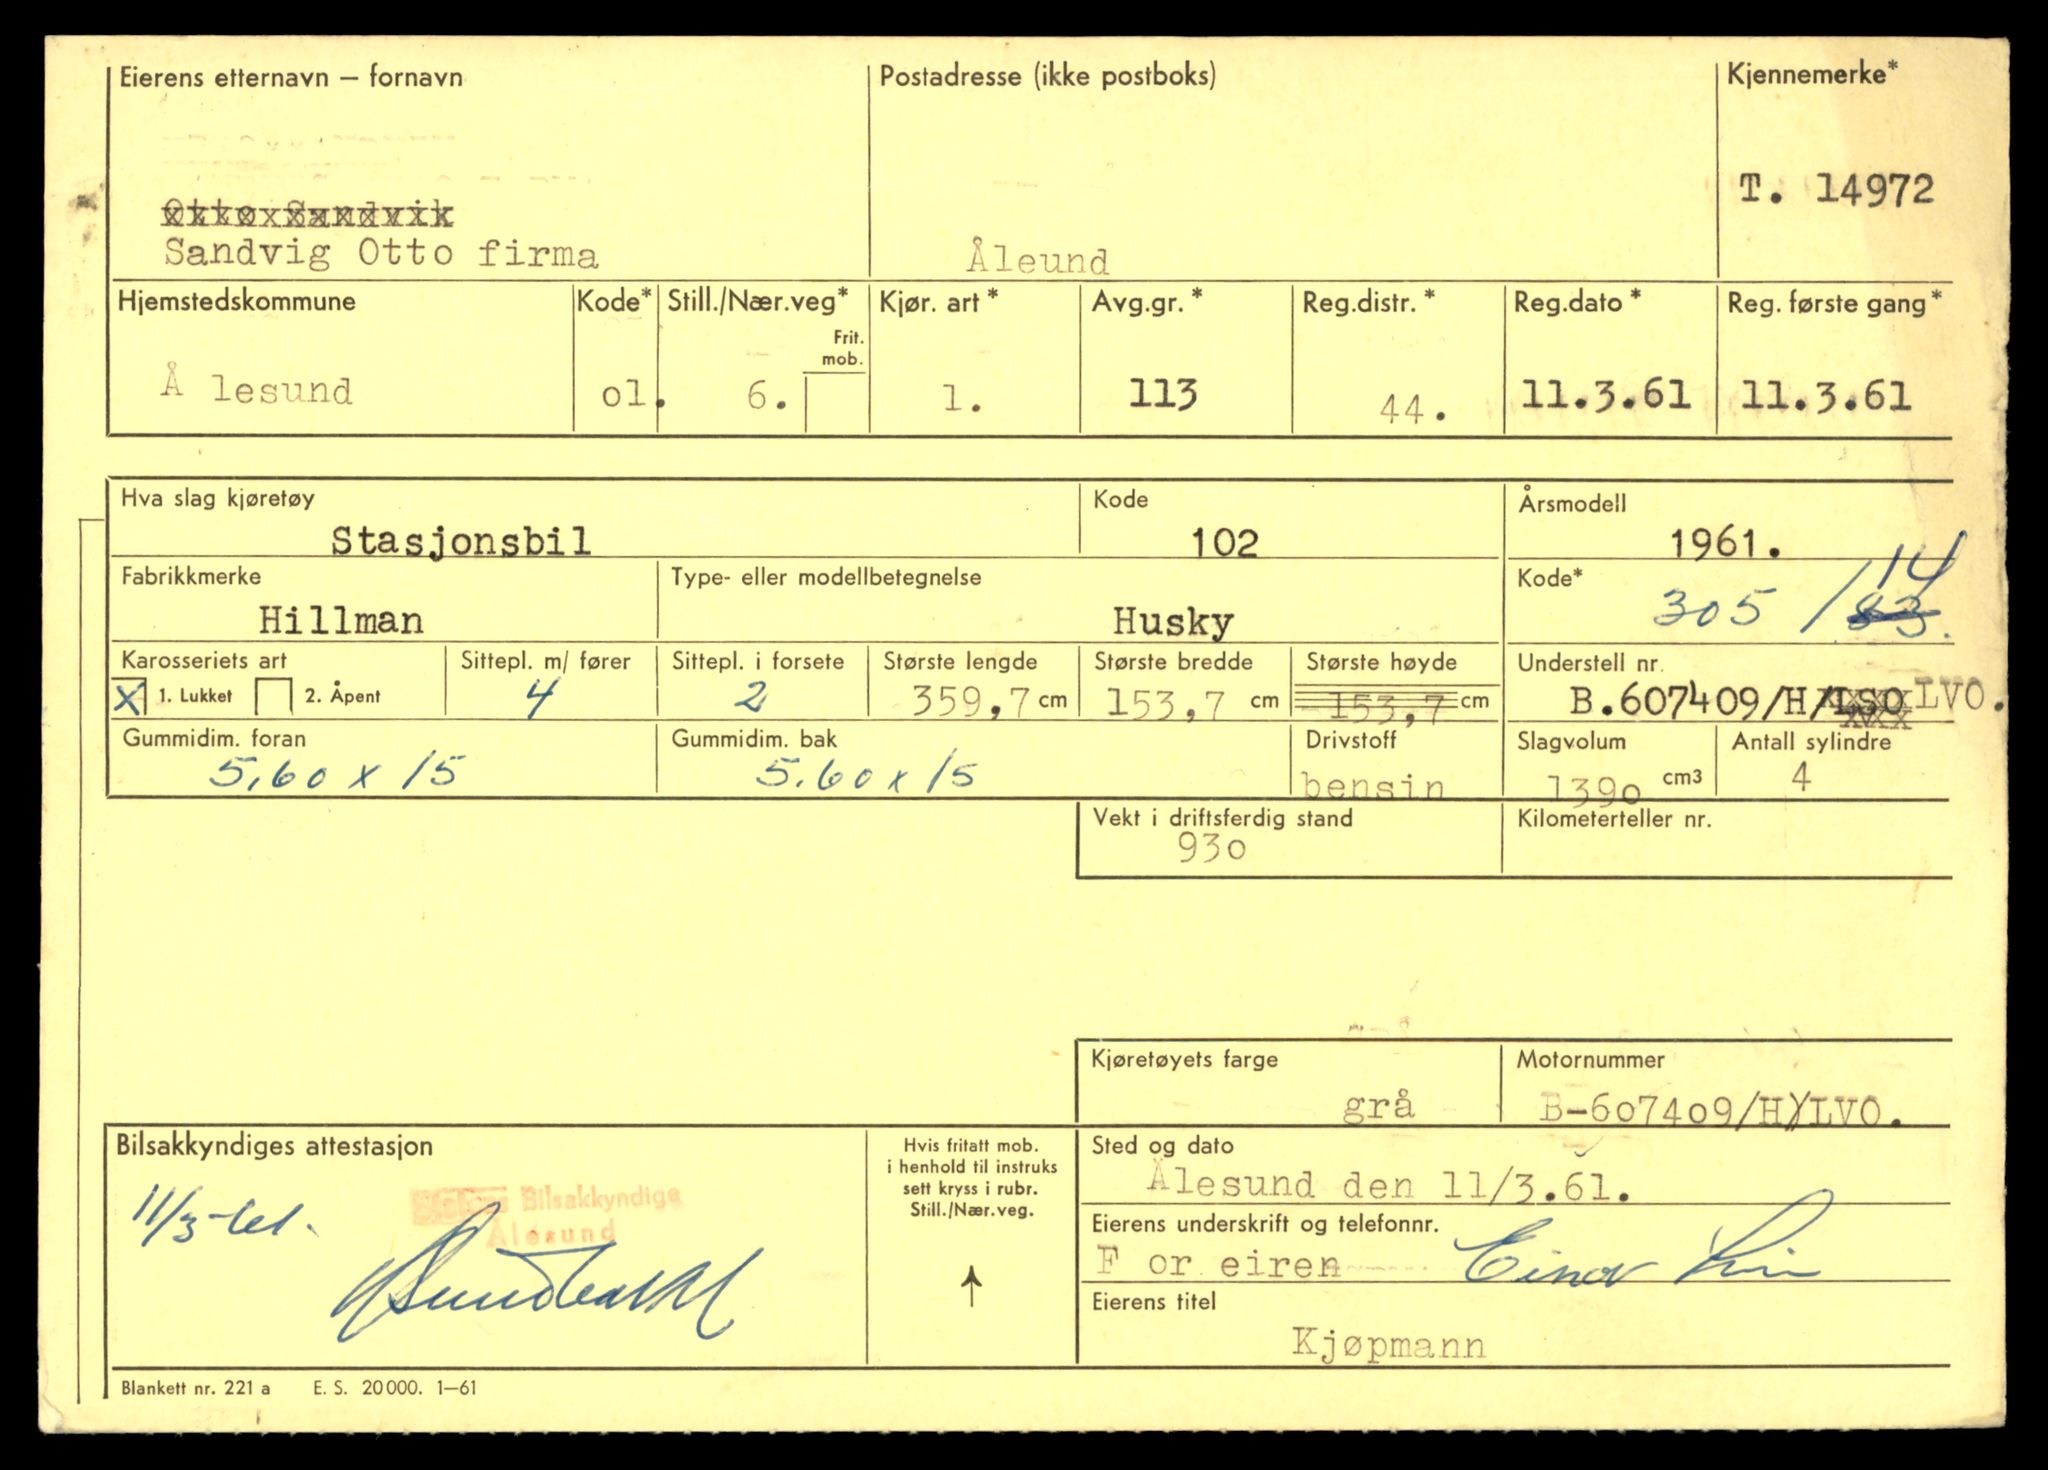 Eierens etternavn – fornavn
Postadresse (ikke postboks)
Kjennemerke*
T. 14972
Otto Sandvik
Sandvig Otto firma
Åleund
Hjemstedskommune
Kode*
Still./Nær.veg*
Frit. mob.
Kjør. art *
Avg.gr. *
Reg.distr. *
Reg.dato *
Reg. første gang *
Å lesund
o1.
6.
1.
113
44.
11.3.61
11.3.61
Hva slag kjøretøy
Kode
Årsmodell
Stasjonsbil
102
1961.
Fabrikkmerke
Type- eller modellbetegnelse
Kode*
Hillman
Husky
305 / 83. 14
Karosseriets art
Sittepl. m/ fører
Sittepl. i forsete
Største lengde
Største bredde
Største høyde
Understell nr.
X 1. Lukket 2. Åpent
4
2
359,7 cm
153,7 cm
153,7 cm
B.607409/H/LSO LVO.
Gummidim. foran
Gummidim. bak
Drivstoff
Slagvolum
Antall sylindre
5.60 x 15
5.60 x 15
bensin
139o cm3
4
Vekt i driftsferdig stand
Kilometerteller nr.
93o
Kjøretøyets farge
Motornummer
grå
B-6o74o9/H/LVO.
Bilsakkyndiges attestasjon
Hvis fritatt mob.
i henhold til instruks
sett kryss i rubr.
Still./Nær.veg.
Sted og dato
Ålesund den 11/3.61.
11/3-61.
Bilsakkyndige
Ålesund
Eierens underskrift og telefonnr.
F or eiren Einar
Eierens titel
Kjøpmann
Blankett nr. 221 a E. S. 20 000. 1–61